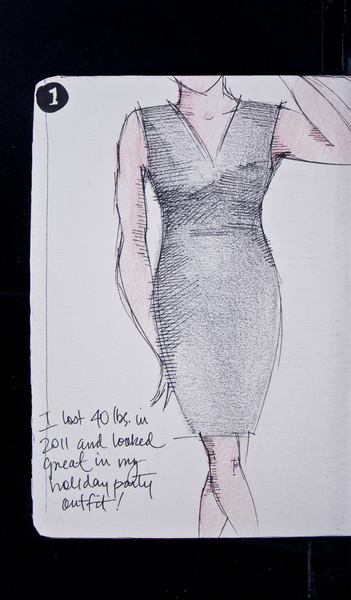 1
I lost 40 lbs. in
2011 and looked
great in my
holiday party
outfit!